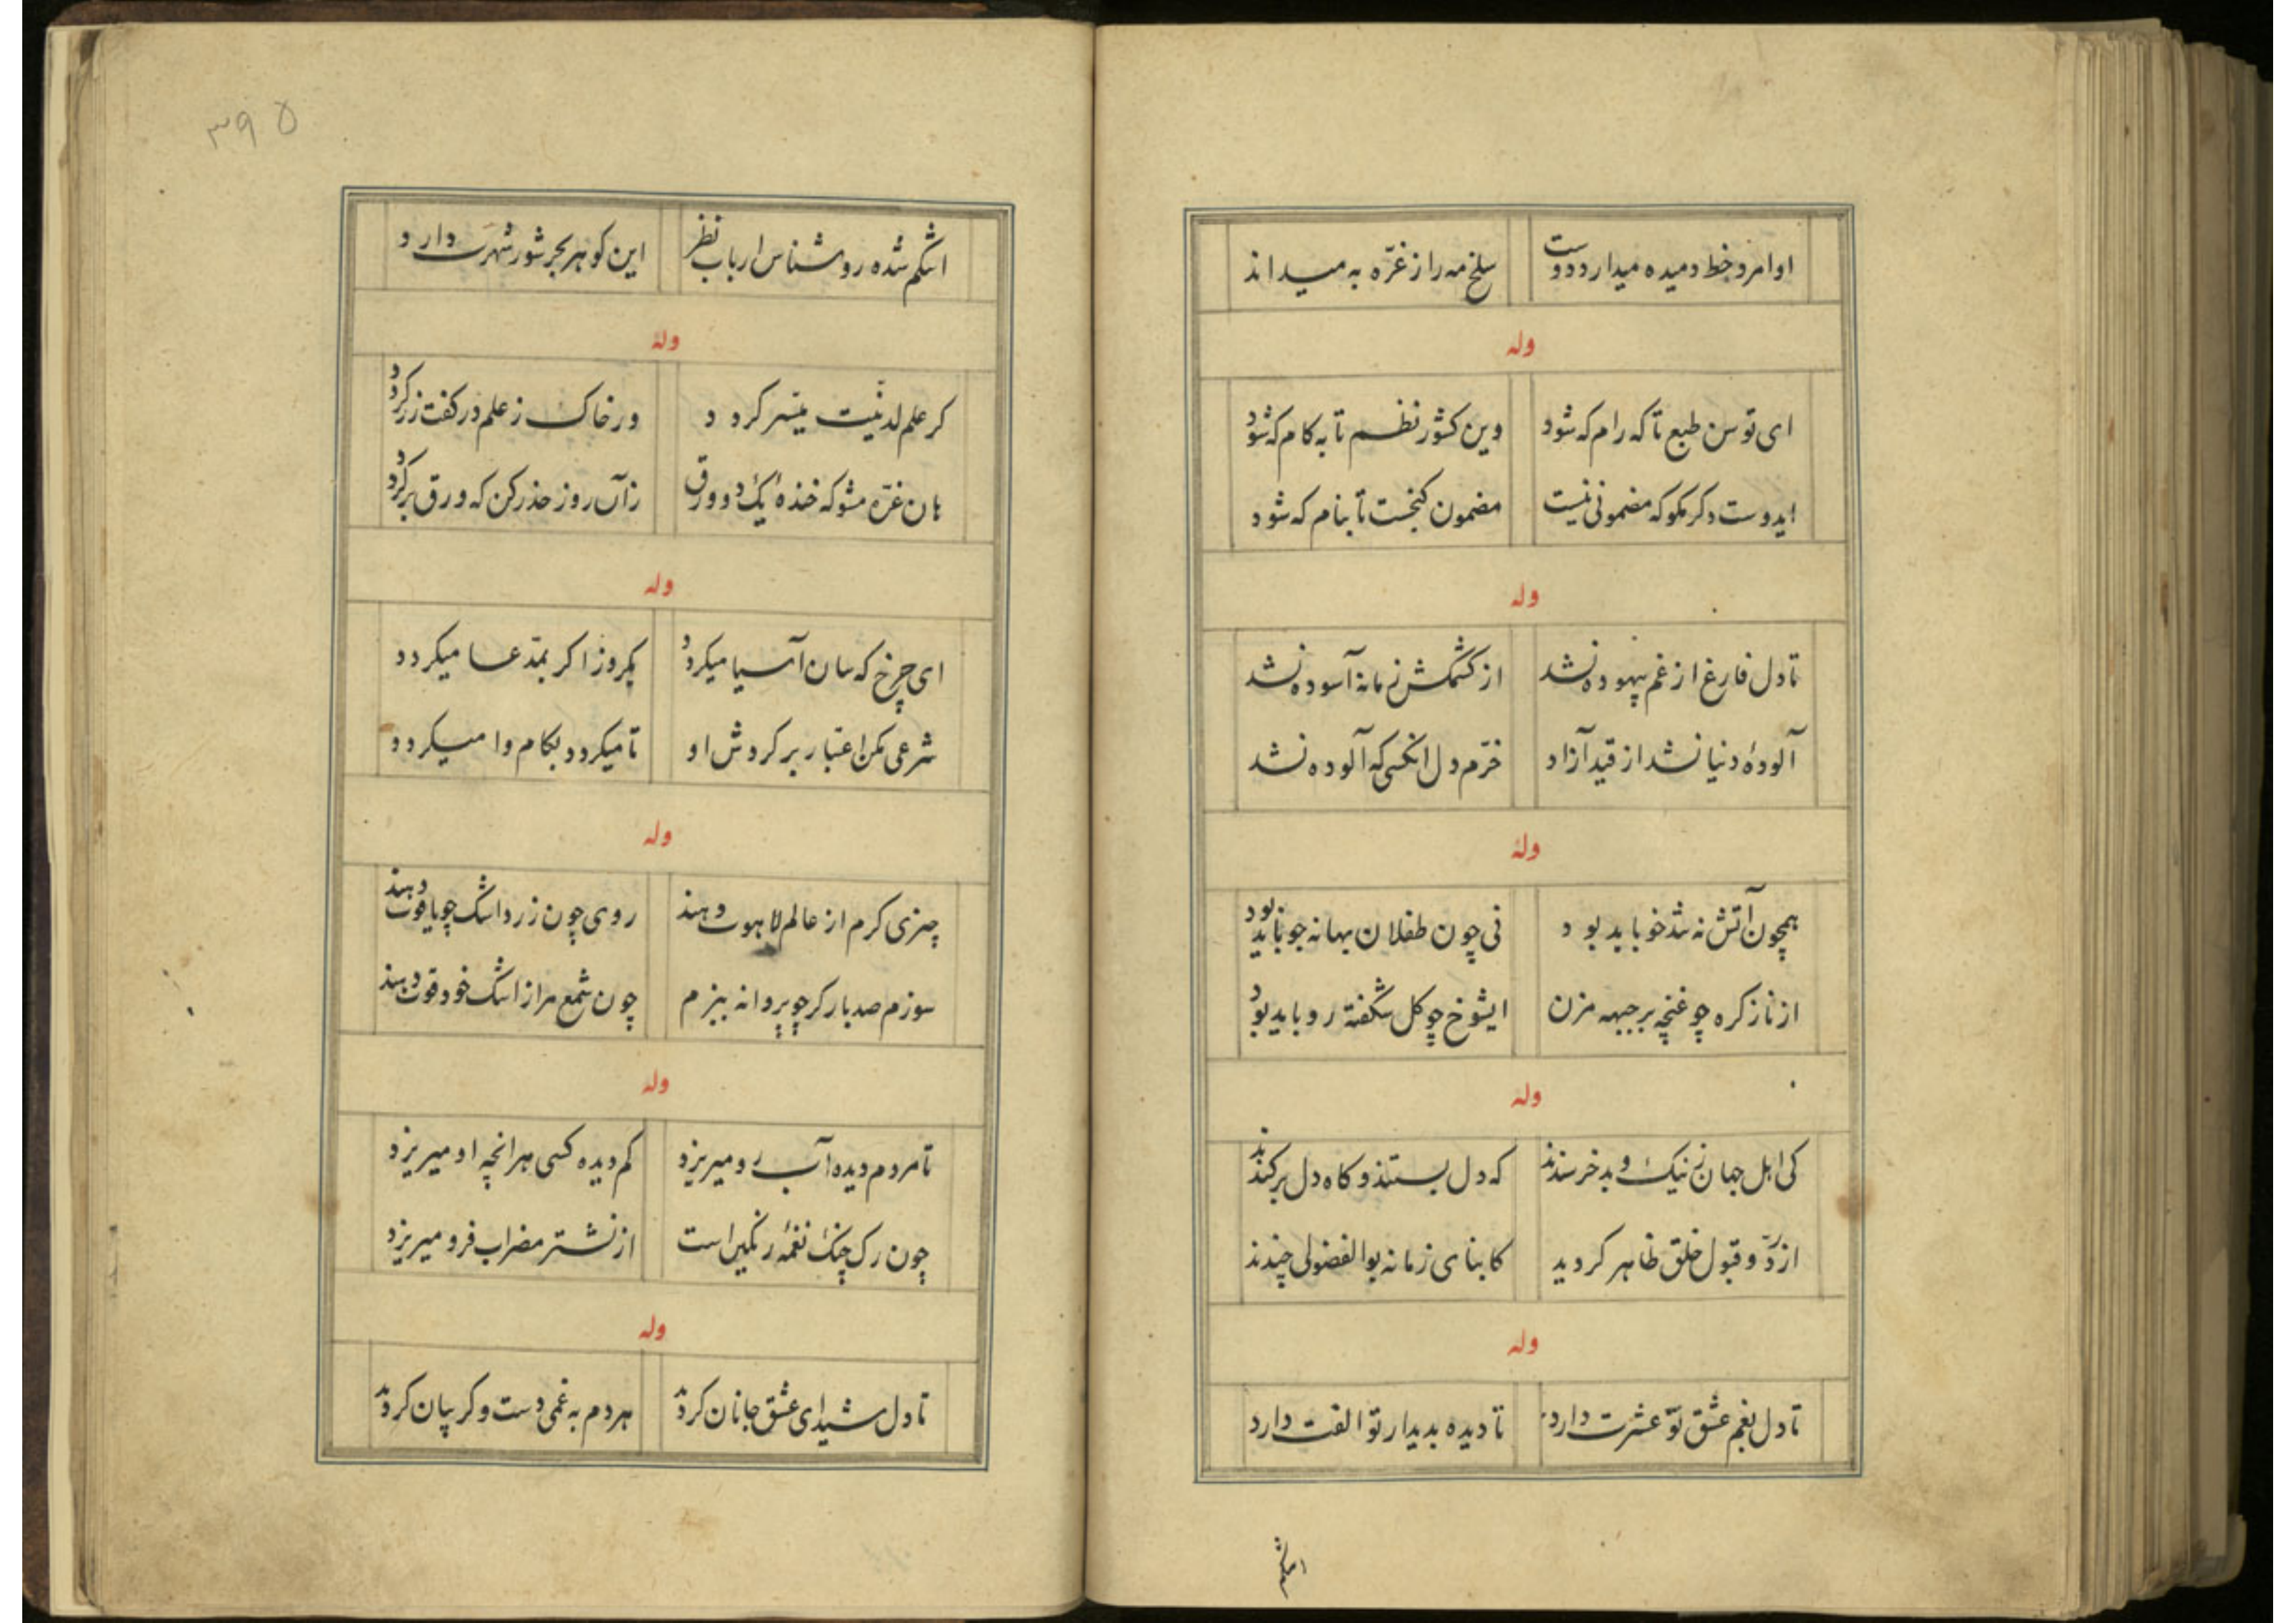 او امرد خط دمیده میدارد دوست
سلخ مه را ز غرّه به میداند
وله
ای توسن طبع تا که رام که شود
وین کشور نظم تا به کام که شود
ایدوست دکر مکو که مضمونی نیست
مضمون کنجست تا بنام که شود
وله
تا دل فارغ از غم بیهوده نشد
از کشمکش زمانه آسوده نشد
آلودهٔ دنیا نشد از قید آزاد
خرّم دل انکسی که آلوده نشد
وله
همچون آتش نه تند خو باید بود
نی چون طفلان بهانه جو باید بود
از ناز کره چو غنچه بر جبهه مزن
ایشوخ چو کل شکفته رو باید بود
وله
کی اهل جهان ز نیک و بد خرسندند
که دل بستند و کاه دل برکندند
از ردّ و قبول خلق ظاهر کردید
کابنای زمانه بوالفضولی چندند
وله
تا دل بغم عشق تو عشرت دارد
تا دیده بدیدار تو الفت دارد
اشکم
۳۹۵
اشکم شده روشناس ارباب نظر
این کوهر بحر شور شهرت دارد
وله
کر علم لدنّیت میّسر کردد
ور خاک ز علم در کفت زر کردد
هان غرّه مشو که خندهٔ یک دو ورق
زآن روز حذر کن که ورق برکردد
وله
ای چرخ که سان آسیا میکردد
یکروز اکر بمدّعا میکردد
شرعی مکن اعتبار بر کردش او
تا میکردد بکام وا میکردد
وله
چیزی کرم از عالم لاهوت دهند
روی چون زر و اشک چو یاقوت دهند
سوزم صد بار کر چو پروانه پیزم
چون شمع مرا ز اشک خود قوت دهند
وله
تا مردم دیده آب رو میریزد
کم دیده کسی هر انچه او میریزد
چون رک چنک نغمهٔ رنکین است
از نشتر مضراب فرو میریزد
وله
تا دل شیدای عشق جانان کردد
هر دم به غمی دست و کریبان کردد